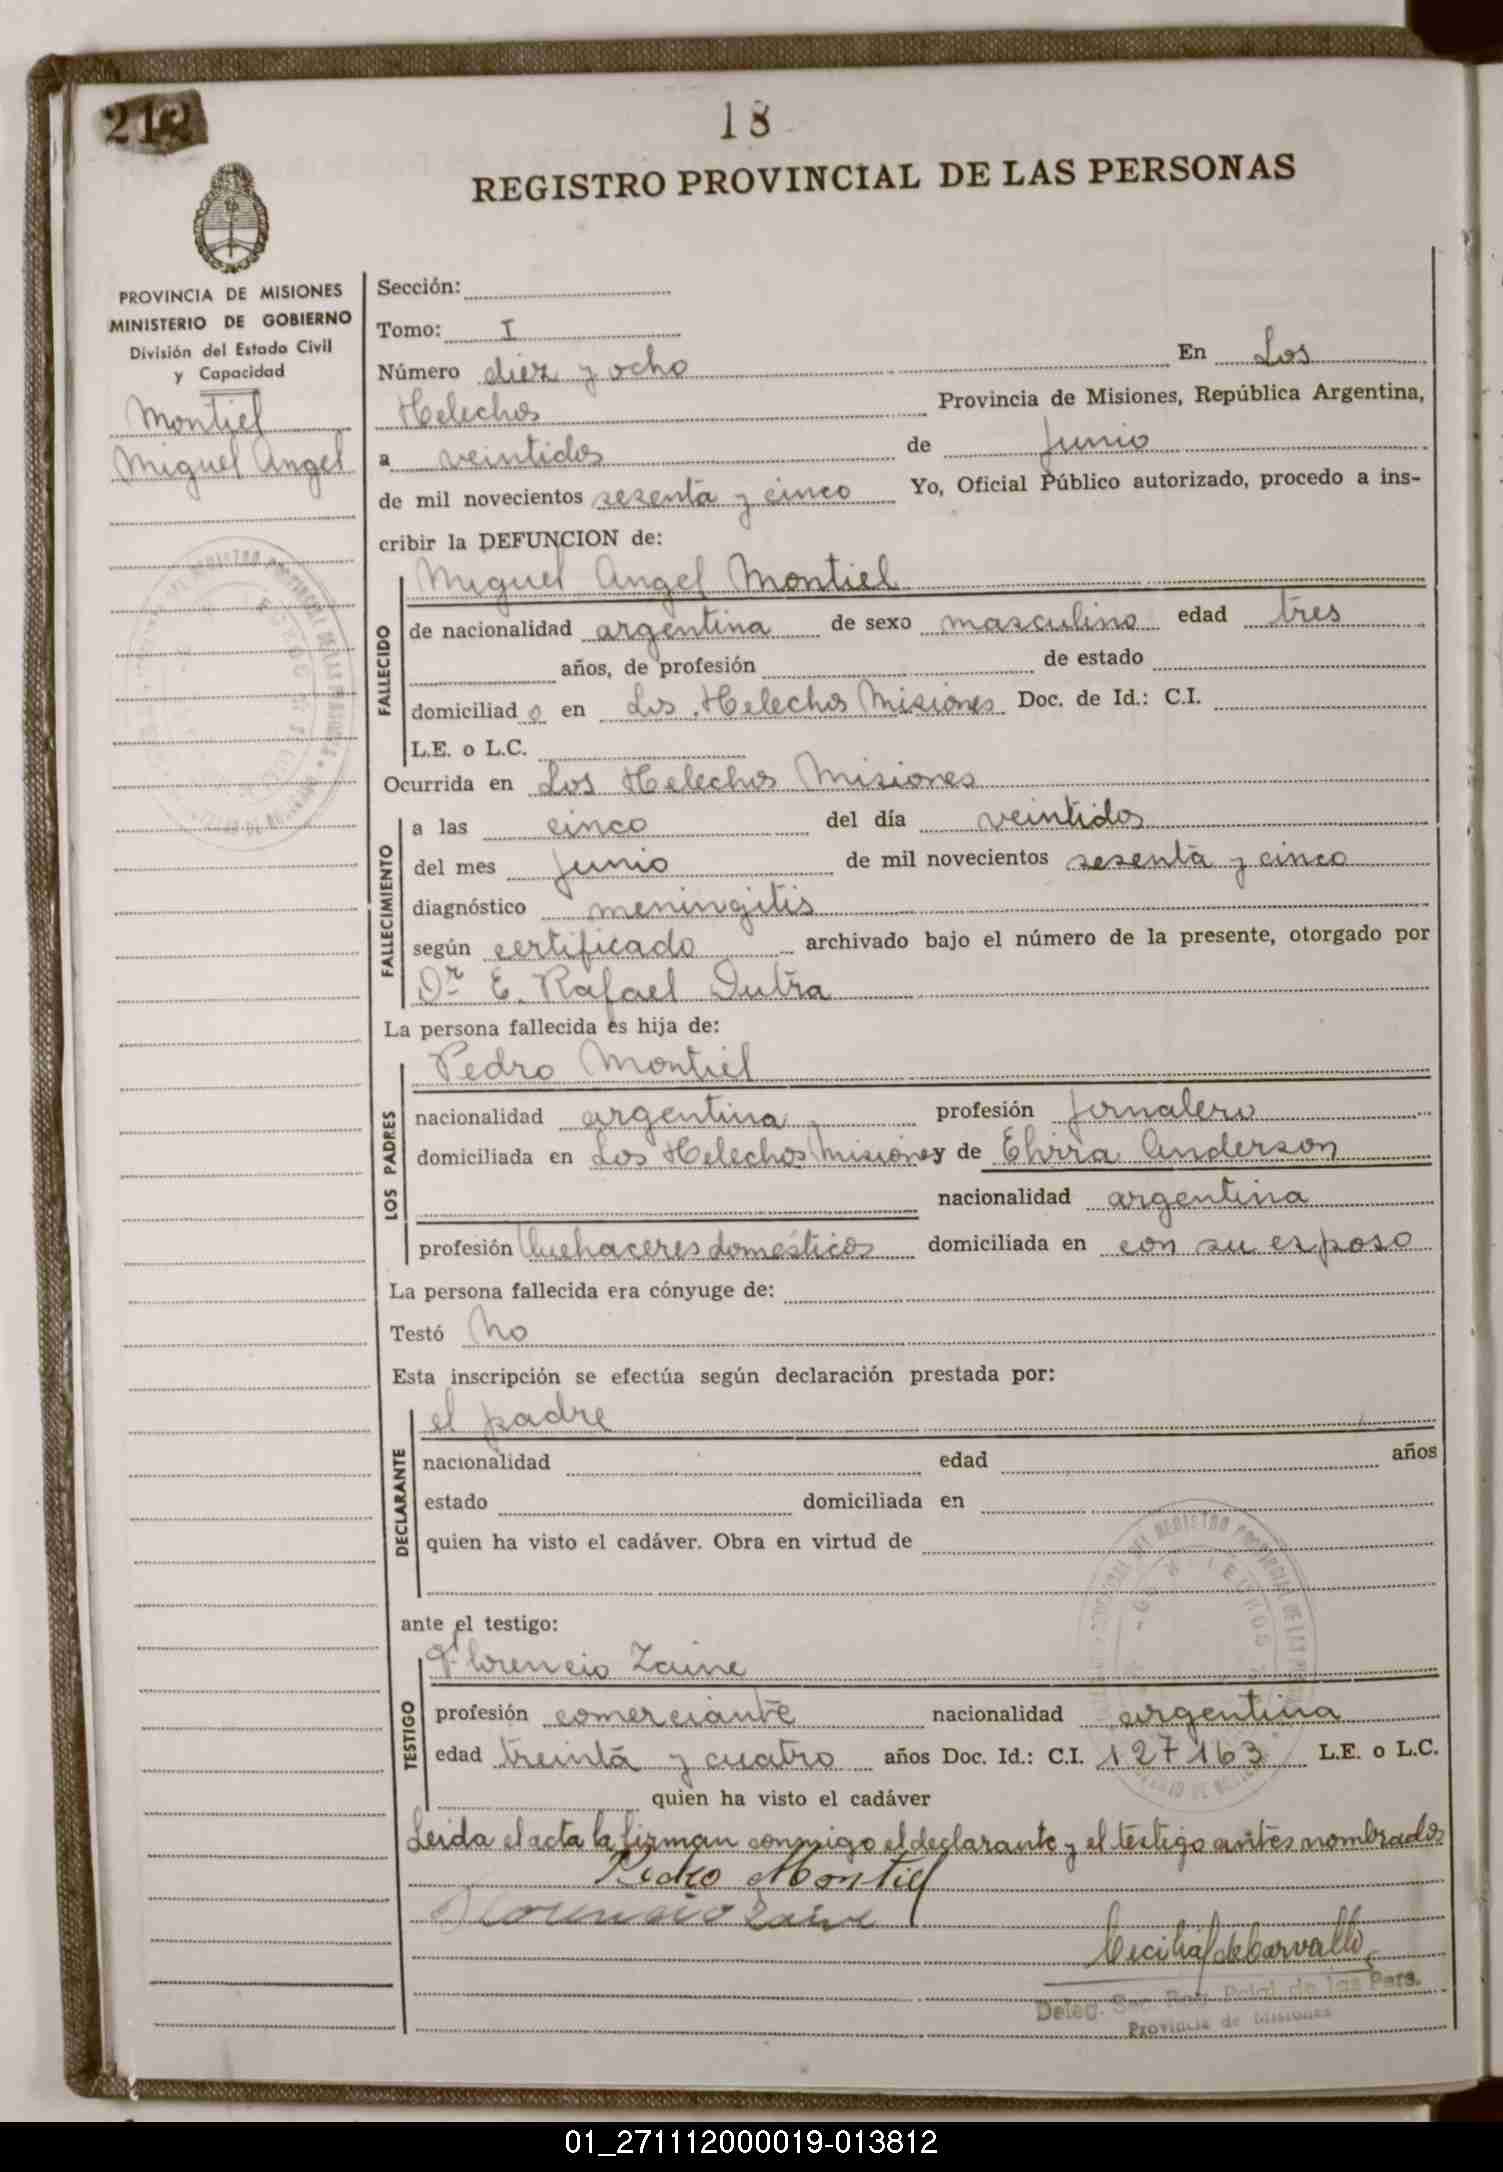 212
18
REGISTRO PROVINCIAL DE LAS PERSONAS
PROVINCIA DE MISIONES
MINISTERIO DE GOBIERNO
División del Estado Civil
y Capacidad
Montiel
Miguel Angel
Sección:
Tomo: I
Número diez y ocho En Los
Helechos Provincia de Misiones, República Argentina,
a veintidos de Junio
de mil novecientos sesenta y cinco Yo, Oficial Público autorizado, procedo a ins-
cribir la DEFUNCION de:
FALLECIDO
Miguel Angel Montiel
de nacionalidad argentina de sexo masculino edad tres
años, de profesión de estado
domiciliad o en Los Helechos Misiones Doc. de Id.: C.I.
L.E. o L.C.
Ocurrida en Los Helechos Misiones
FALLECIMIENTO
a las cinco del día veintidos
del mes Junio de mil novecientos sesenta y cinco
diagnóstico meningitis
según certificado archivado bajo el número de la presente, otorgado por
Dr E. Rafael Dutra
La persona fallecida es hija de:
LOS PADRES
Pedro Montiel
nacionalidad argentina profesión jornalero
domiciliada en Los Helechos Misiones y de Elvira Anderson
nacionalidad argentina
profesión Quehaceres domésticos domiciliada en con su esposo
La persona fallecida era cónyuge de:
Testó No
Esta inscripción se efectúa según declaración prestada por:
DECLARANTE
el padre
nacionalidad edad años
estado domiciliada en
quien ha visto el cadáver. Obra en virtud de
ante el testigo:
TESTIGO
Florencio Zaine
profesión comerciante nacionalidad argentina
edad treinta y cuatro años Doc. Id.: C.I. 127163 L.E. o L.C.
quien ha visto el cadáver
Leida el acta la firman conmigo el declarante y el testigo antes nombrados
Pedro Montiel
Florencio Zaine
Cecilia de Carvallo
Deleg. Sec. Reg. Pcial de las Pers.
Provincia de Misiones
01_271112000019-013812